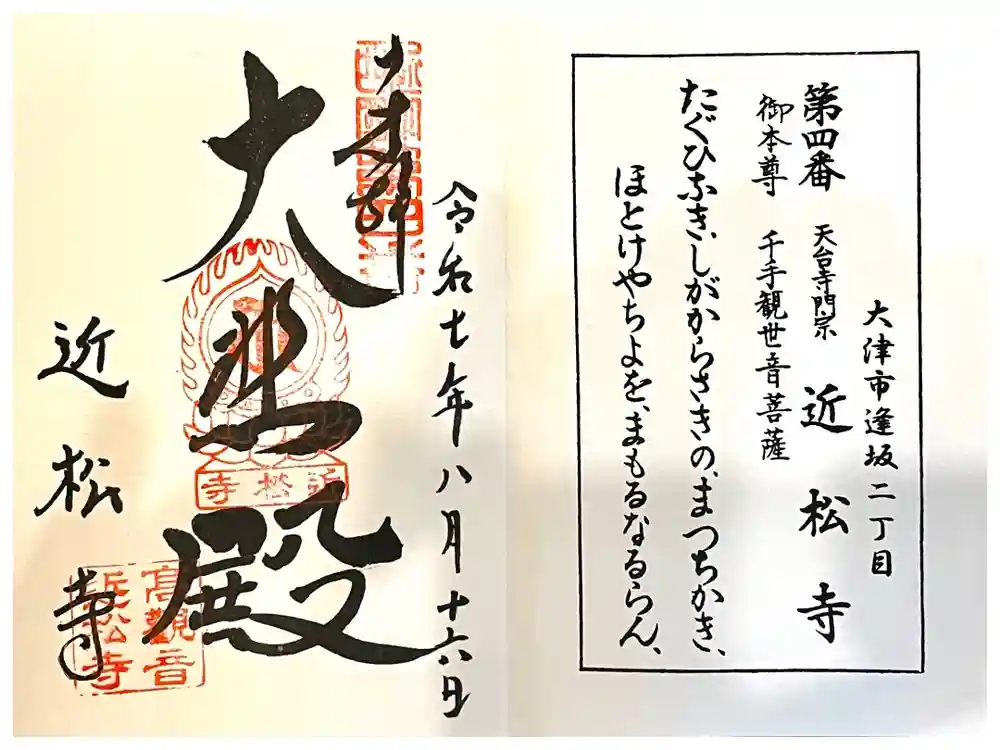 大津市逢坂二丁目
第四番 天台寺門宗 近松寺
御本尊 千手観世音菩薩
たぐひなき、しがからさきの、まつちかき、
ほとけやちよを、まもるなるらん、
令和七年八月十六日
奉拝
大悲殿
近松寺
近松寺
高觀音
近松寺